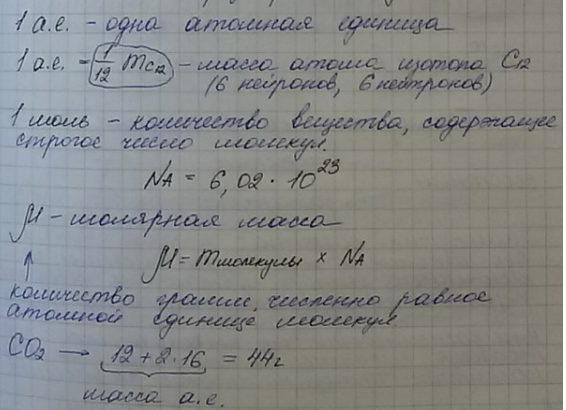 1 а.е. – одна атомная единица
1 а.е. – 1/12 mC12 – масса атома изотопа C12
(6 нейронов, 6 нейтронов)
1 моль – количество вещества, содержащее
строгое число молекул.
NA = 6,02 · 10^23
μ – молярная масса
μ = mмолекулы × NA
количество грамм, численно равное
атомной единице молекул
CO2 → 12 + 2·16 = 44г
масса а.е.